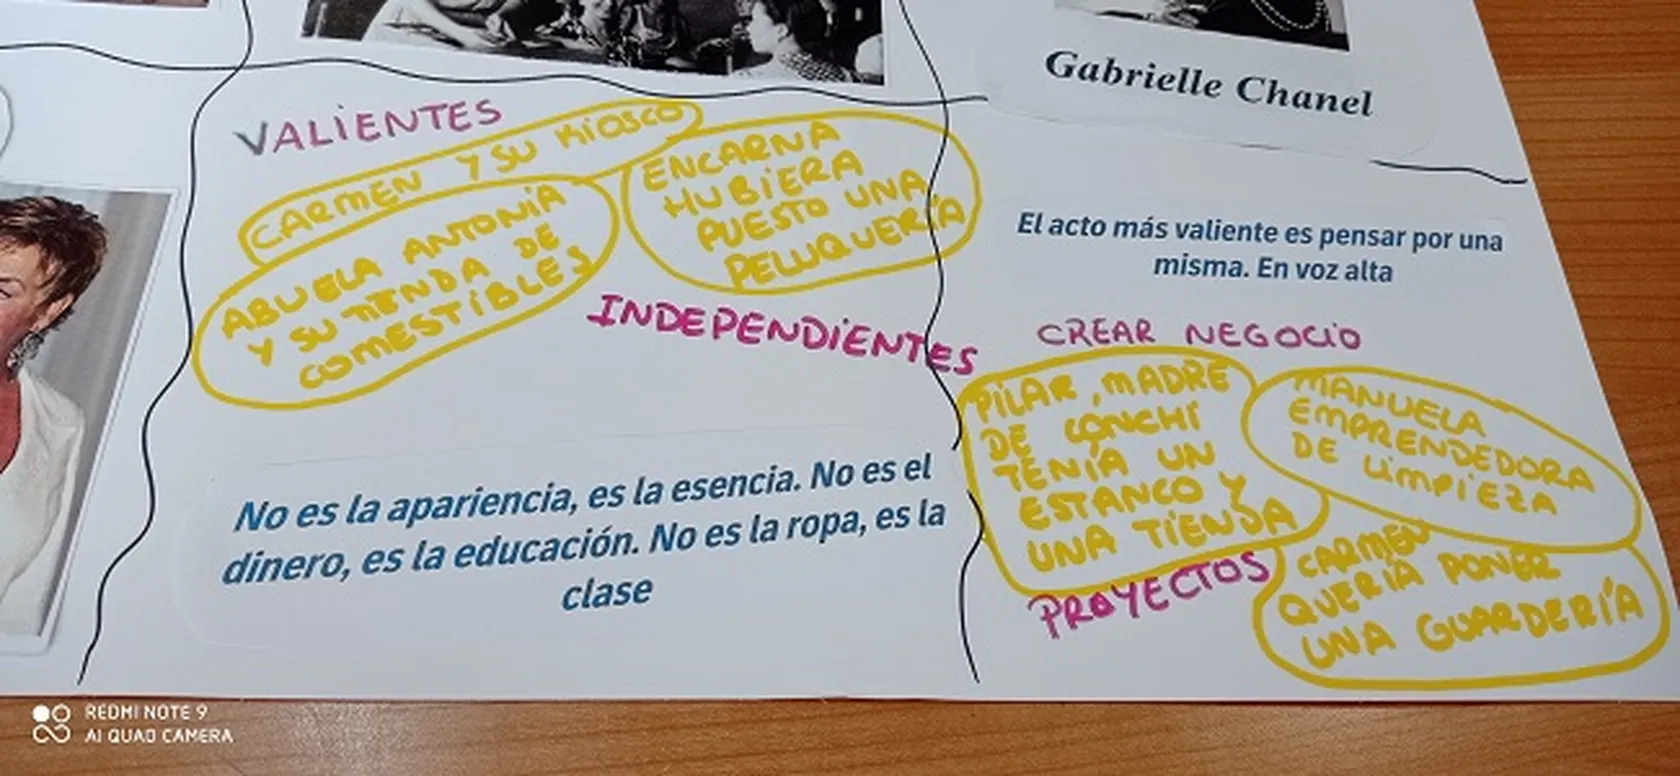 Gabrielle Chanel
VALIENTES
CARMEN Y SU KIOSCO
ABUELA ANTONIA
Y SU TIENDA DE
COMESTIBLES
ENCARNA
HUBIERA
PUESTO UNA
PELUQUERÍA
INDEPENDIENTES
No es la apariencia, es la esencia. No es el
dinero, es la educación. No es la ropa, es la
clase
El acto más valiente es pensar por una
misma. En voz alta
CREAR NEGOCIO
PILAR, MADRE
DE CONCHI
TENÍA UN
ESTANCO Y
UNA TIENDA
MANUELA
EMPRENDEDORA
DE LIMPIEZA
PROYECTOS
CARMEN
QUERÍA PONER
UNA GUARDERÍA
REDMI NOTE 9
AI QUAD CAMERA